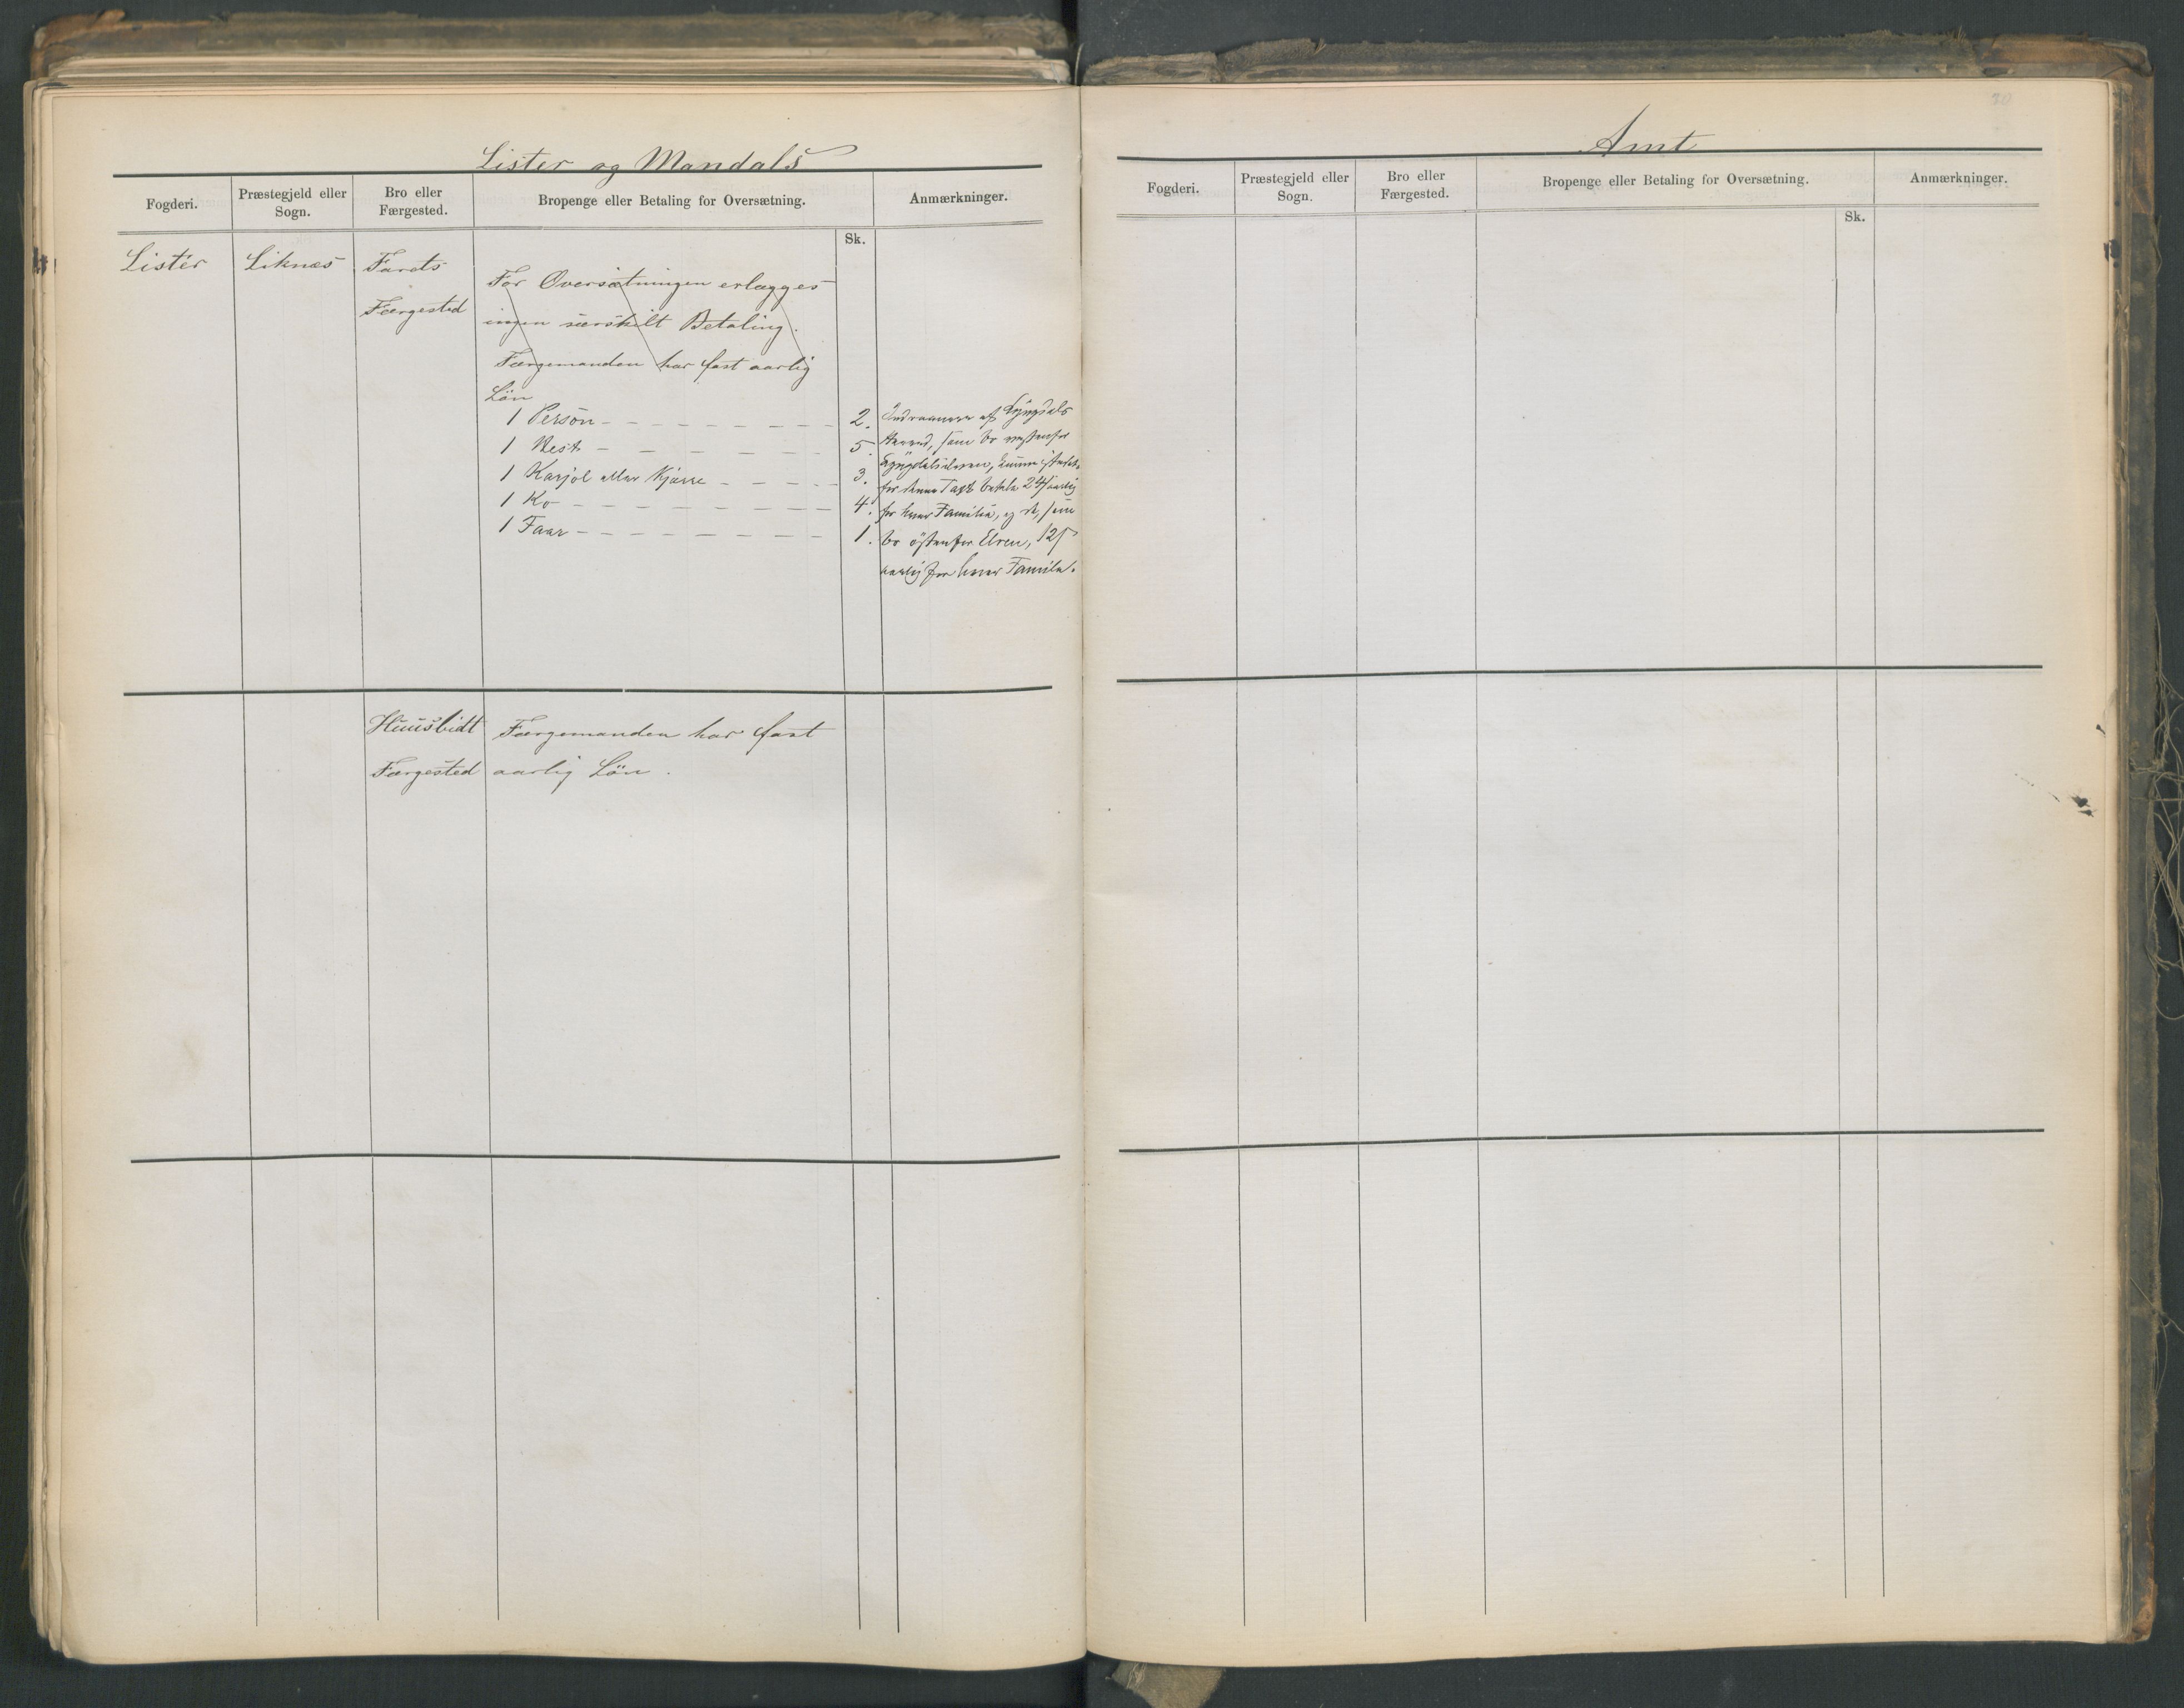 Lister og Mandals
Fogderi.
Præstegjeld eller
Sogn.
Bro eller
Færgested.
Bropenge eller Betaling for Oversætning.
Anmærkninger.
Sk.
Lister
Liknes
Færgested
For Oversætningen erlægges
ingen særskilt Betaling.
Færgemanden har fast aarlig
Lön
1 Person 2.
1 Hest 5.
1 Karjol eller Kjærre 3.
1 Ko 4.
1 Faar 1.
af Lyngdals
som bo vestenfor
Lyngdalselven, kunne istedet
for denne Taxt betale 24 aarlig
for hver Familie, og de, som
bo östenfor Elven, 12
aarlig for hver Familie.
Færgested
Færgemanden har fast
aarlig Lön.
20
Amt
Fogderi.
Præstegjeld eller
Sogn.
Bro eller
Færgested.
Bropenge eller Betaling for Oversætning.
Anmærkninger.
Sk.